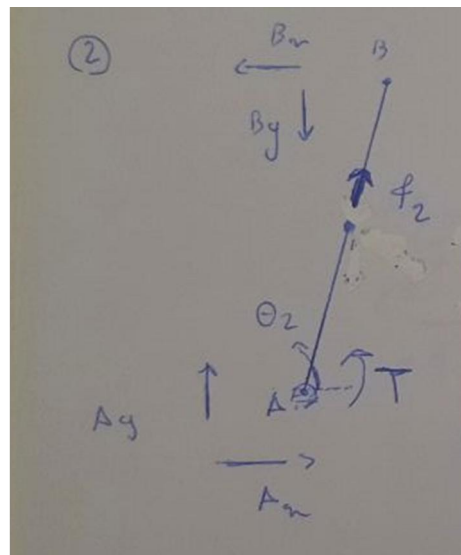 ②
Bx
B
By
f2
θ2
A
T
Ay
Ax